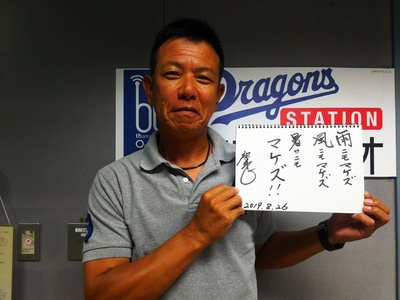 Dragons
STATION
雨ニモマケズ
風ニモマケズ
暑サニモ
マケズ!!
2019.8.26